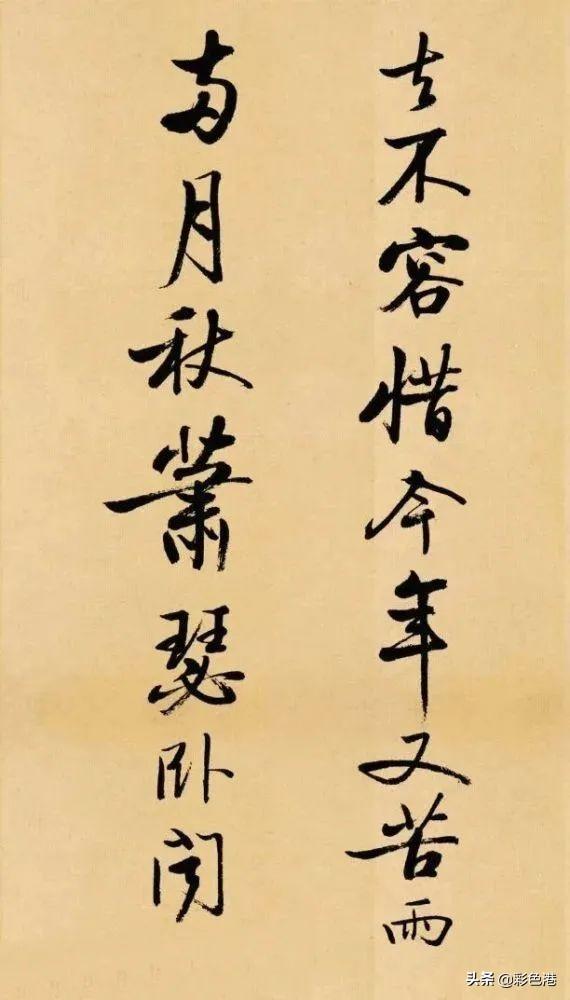 去不容惜今年又苦雨
两月秋萧瑟卧闻
头条 @彩色港